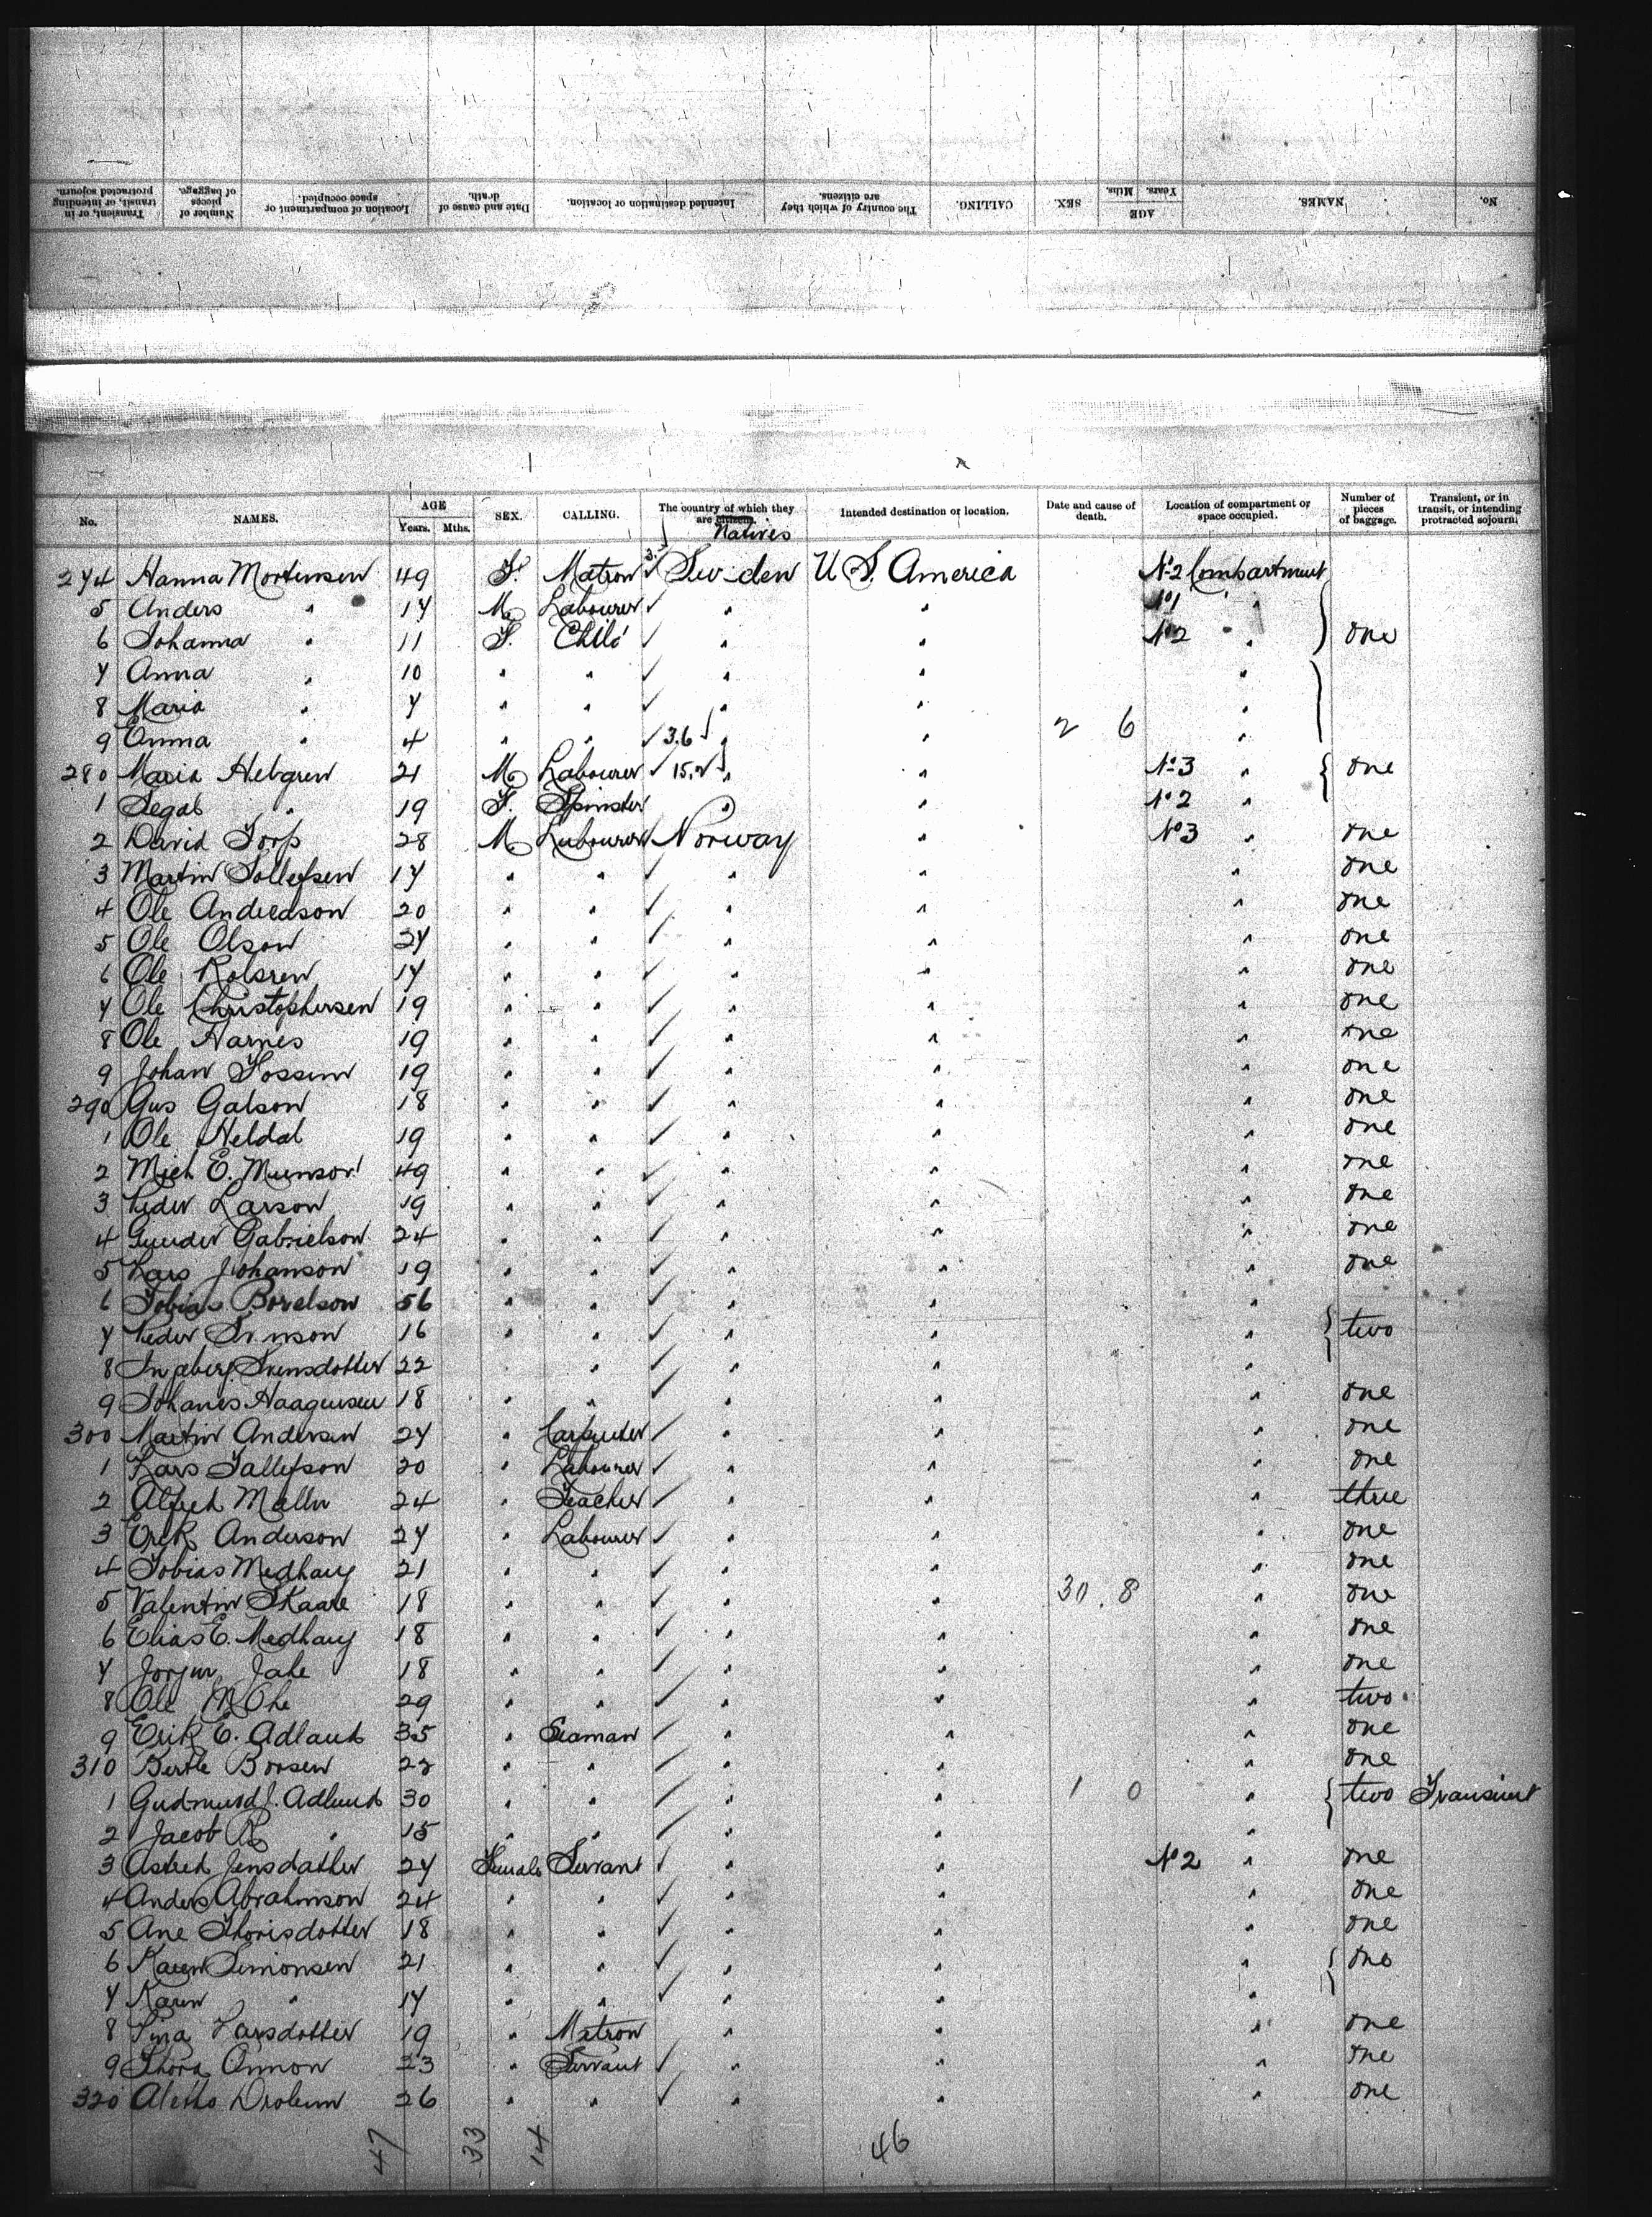 No. NAMES. AGE Years. Mths. SEX. CALLING. The country of which they are citizens. Intended destination or location. Date and cause of death. Location of compartment or space occupied. Number of pieces of baggage. Transient, or in transit, or intending protracted sojourn.
No. NAMES. AGE Years. Mths. SEX. CALLING. The country of which they are citizens. Natives Intended destination or location. Date and cause of death. Location of compartment or space occupied. Number of pieces of baggage. Transient, or in transit, or intending protracted sojourn.
274 Hanna Mortensen 49 F. Matron ✓ Sweden U S. America No 2 Compartment
5 Anders " 17 M Labourer ✓ " " No 1 "
6 Johanna " 11 F. Child ✓ " " No 2 " one
7 Anna " 10 " " ✓ " " "
8 Maria " 7 " " ✓ " " "
9 Emma " 4 " " ✓ 3.6 " " 2 6 "
280 Maria Hebgren 21 M Labourer ✓ 15.2 " " No 3 " one
1 Segal " 19 F. Spinster " " No 2 "
2 David Torp 28 M Labourer ✓ Norway " No 3 " one
3 Martin Tollefsen 17 " " ✓ " " " one
4 Ole Anderson 20 " " ✓ " " " one
5 Ole Olson 27 " " ✓ " " " one
6 Ole Rolsren 17 " " ✓ " " " one
7 Ole Christophersen 19 " " ✓ " " " one
8 Ole Harnes 19 " " ✓ " " " one
9 Johan Fossum 19 " " ✓ " " " one
290 Gus Galson 18 " " ✓ " " " one
1 Ole Heldal 19 " " ✓ " " " one
2 Mich E. Munson 49 " " ✓ " " " one
3 Peder Larson 19 " " ✓ " " " one
4 Gunder Gabrielson 24 " " ✓ " " " one
5 Lars Johanson 19 " " ✓ " " " one
6 Tobias Borelson 56 " " ✓ " " "
7 Peder Svenson 16 " " ✓ " " " two
8 Ingeberg Svensdotter 22 ✓ " " "
9 Johanes Haagensen 18 " " ✓ " " " one
300 Martin Andersen 27 " Carpenter ✓ " " " one
1 Lars Tallefson 20 " Labourer ✓ " " " one
2 Alfred Maller 24 " Teacher ✓ " " " three
3 Erik Anderson 27 " Labourer ✓ " " " one
4 Tobias Medhaug 21 " " ✓ " " " one
5 Valentin Skaare 18 " " ✓ " " 30 . 8 " one
6 Elias E. Medhaug 18 " " ✓ " " " one
7 Jorgen Jahe 18 " " ✓ " " " one
8 Ole M Ohe 29 " " ✓ " " " two
9 Erik E. Adland 35 " Seaman ✓ " " " one
310 Bertle Borsen 22 " " ✓ " " " one
1 Gudmund J. Adlund 30 " " ✓ " " 1 0 " two Transient
2 Jacob R " 15 " " ✓ " " "
3 Astred Jensdatter 27 Female Servant ✓ " " No 2 " one
4 Anders Abrahmson 24 " " ✓ " " " one
5 Ane Thorisdotter 18 " " ✓ " " " one
6 Karen Simonsen 21 " " ✓ " " " one
7 Karen " 17 " " ✓ " " "
8 Tina Larsdotter 19 " Matron " " " one
9 Thora Onnon 23 " Servant ✓ " " " one
320 Aletta Droleum 26 " " ✓ " " " one
47 33 14 46